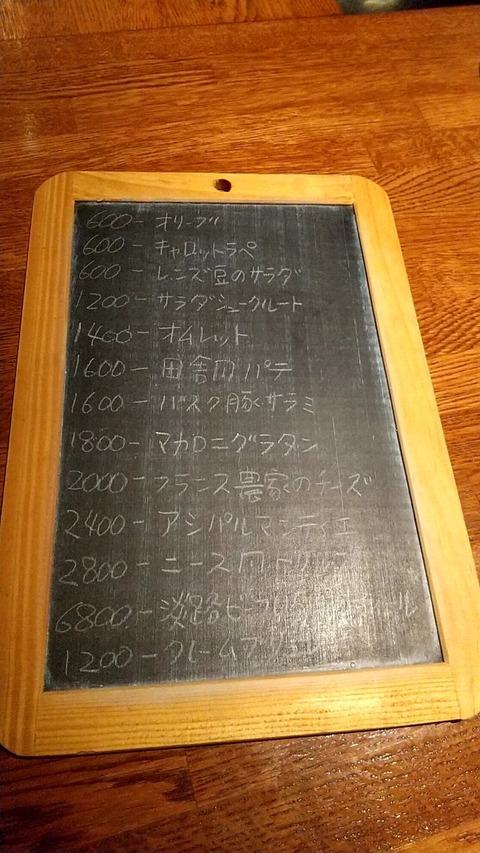 600- オリーブ
600- キャロットラペ
600- レンズ豆のサラダ
1200- サラダシュークルート
1400- オムレット
1600- 田舎風パテ
1600- バスク豚サラミ
1800- マカロニグラタン
2000- フランス農家のチーズ
2400- アシパルマンティエ
2800- ニース風
6800- 淡路ビーフ
1200- クレームブリュレ